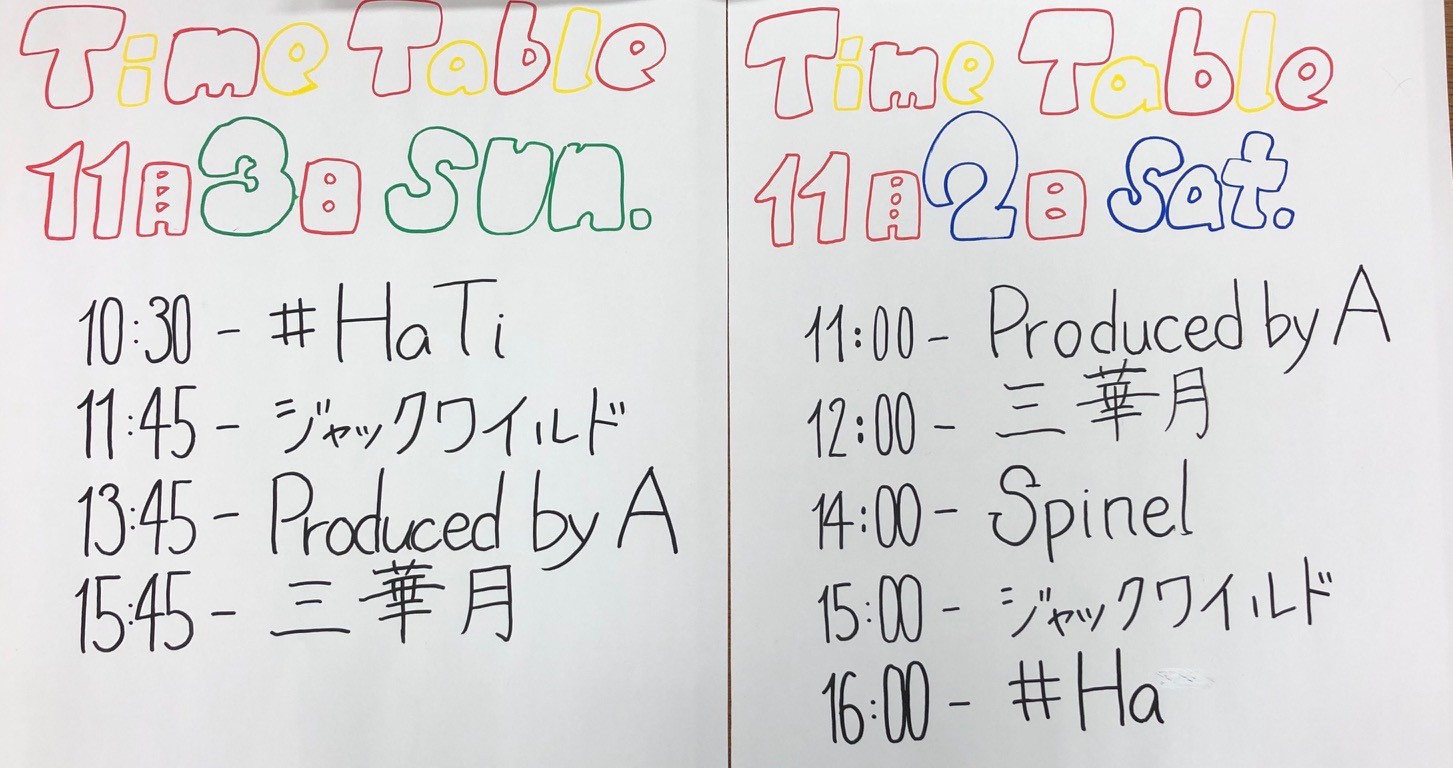 Time Table
11月3日 Sun.
10:30 - #HaTi
11:45 - ジャックワイルド
13:45 - Produced by A
15:45 - 三華月
Time Table
11月2日 Sat.
11:00 - Produced by A
12:00 - 三華月
14:00 - Spinel
15:00 - ジャックワイルド
16:00 - #Ha